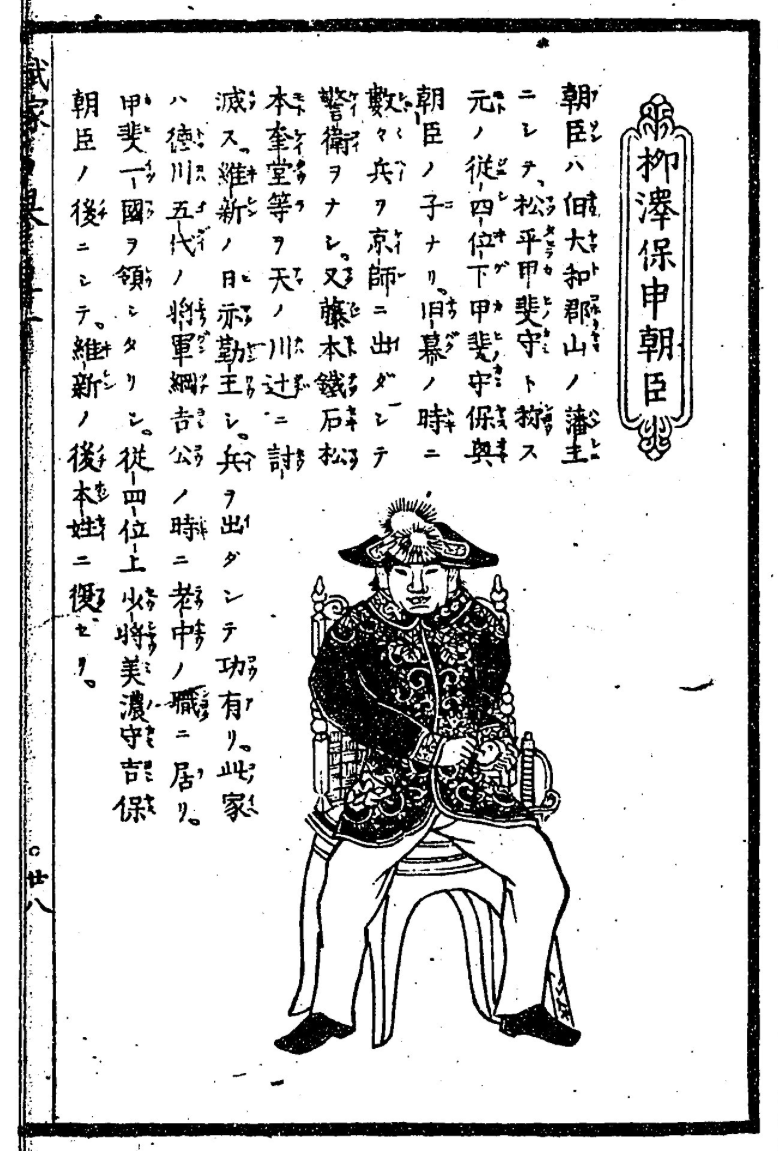 柳澤保申朝臣
朝臣ハ旧大和郡山ノ藩主
ニシテ、松平甲斐守ト称ス
元ノ從四位下甲斐守保興
朝臣ノ子ナリ。旧幕ノ時ニ
數々兵ヲ京師ニ出ダシテ
警衛ヲナシ。又藤本鐵石松
本奎堂等ヲ天ノ川辻ニ討
滅ス。維新ノ日亦勤王シ。兵ヲ出ダシテ功有リ。此家
ハ徳川五代ノ将軍綱吉公ノ時ニ老中ノ職ニ居リ。
甲斐一國ヲ領シタリシ。從四位上少将美濃守吉保
朝臣ノ後ニシテ。維新ノ後本姓ニ復セリ。
武家
廿八